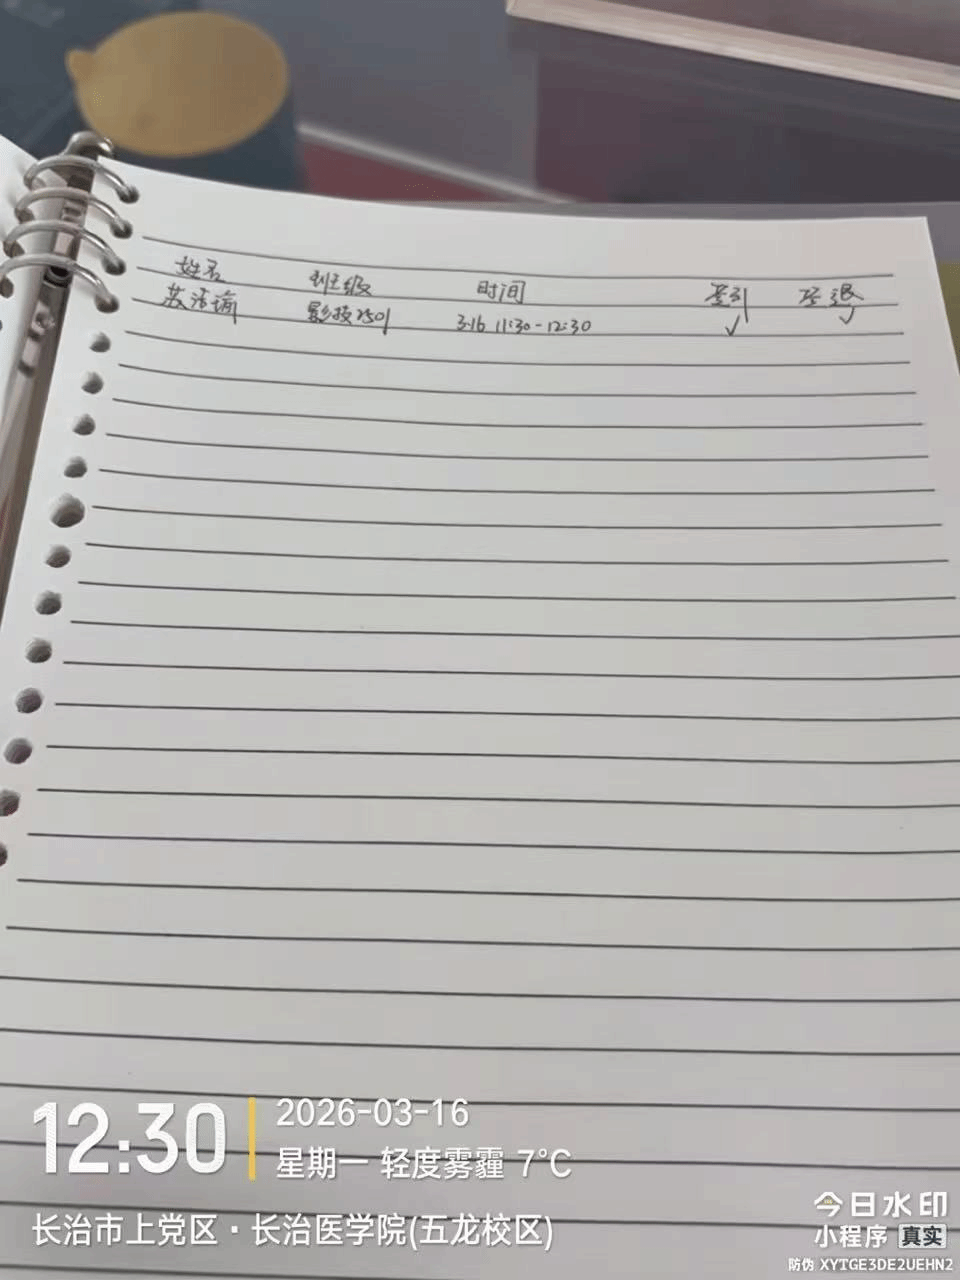 姓名 班级 时间 签到 签退
苏洁瑜 影技2501 3.16 11:30-12:30 ✓ ✓
12:30
2026-03-16
星期一 轻度雾霾 7°C
长治市上党区·长治医学院(五龙校区)
今日水印
小程序 真实
防伪 XYTGE3DE2UEHN2